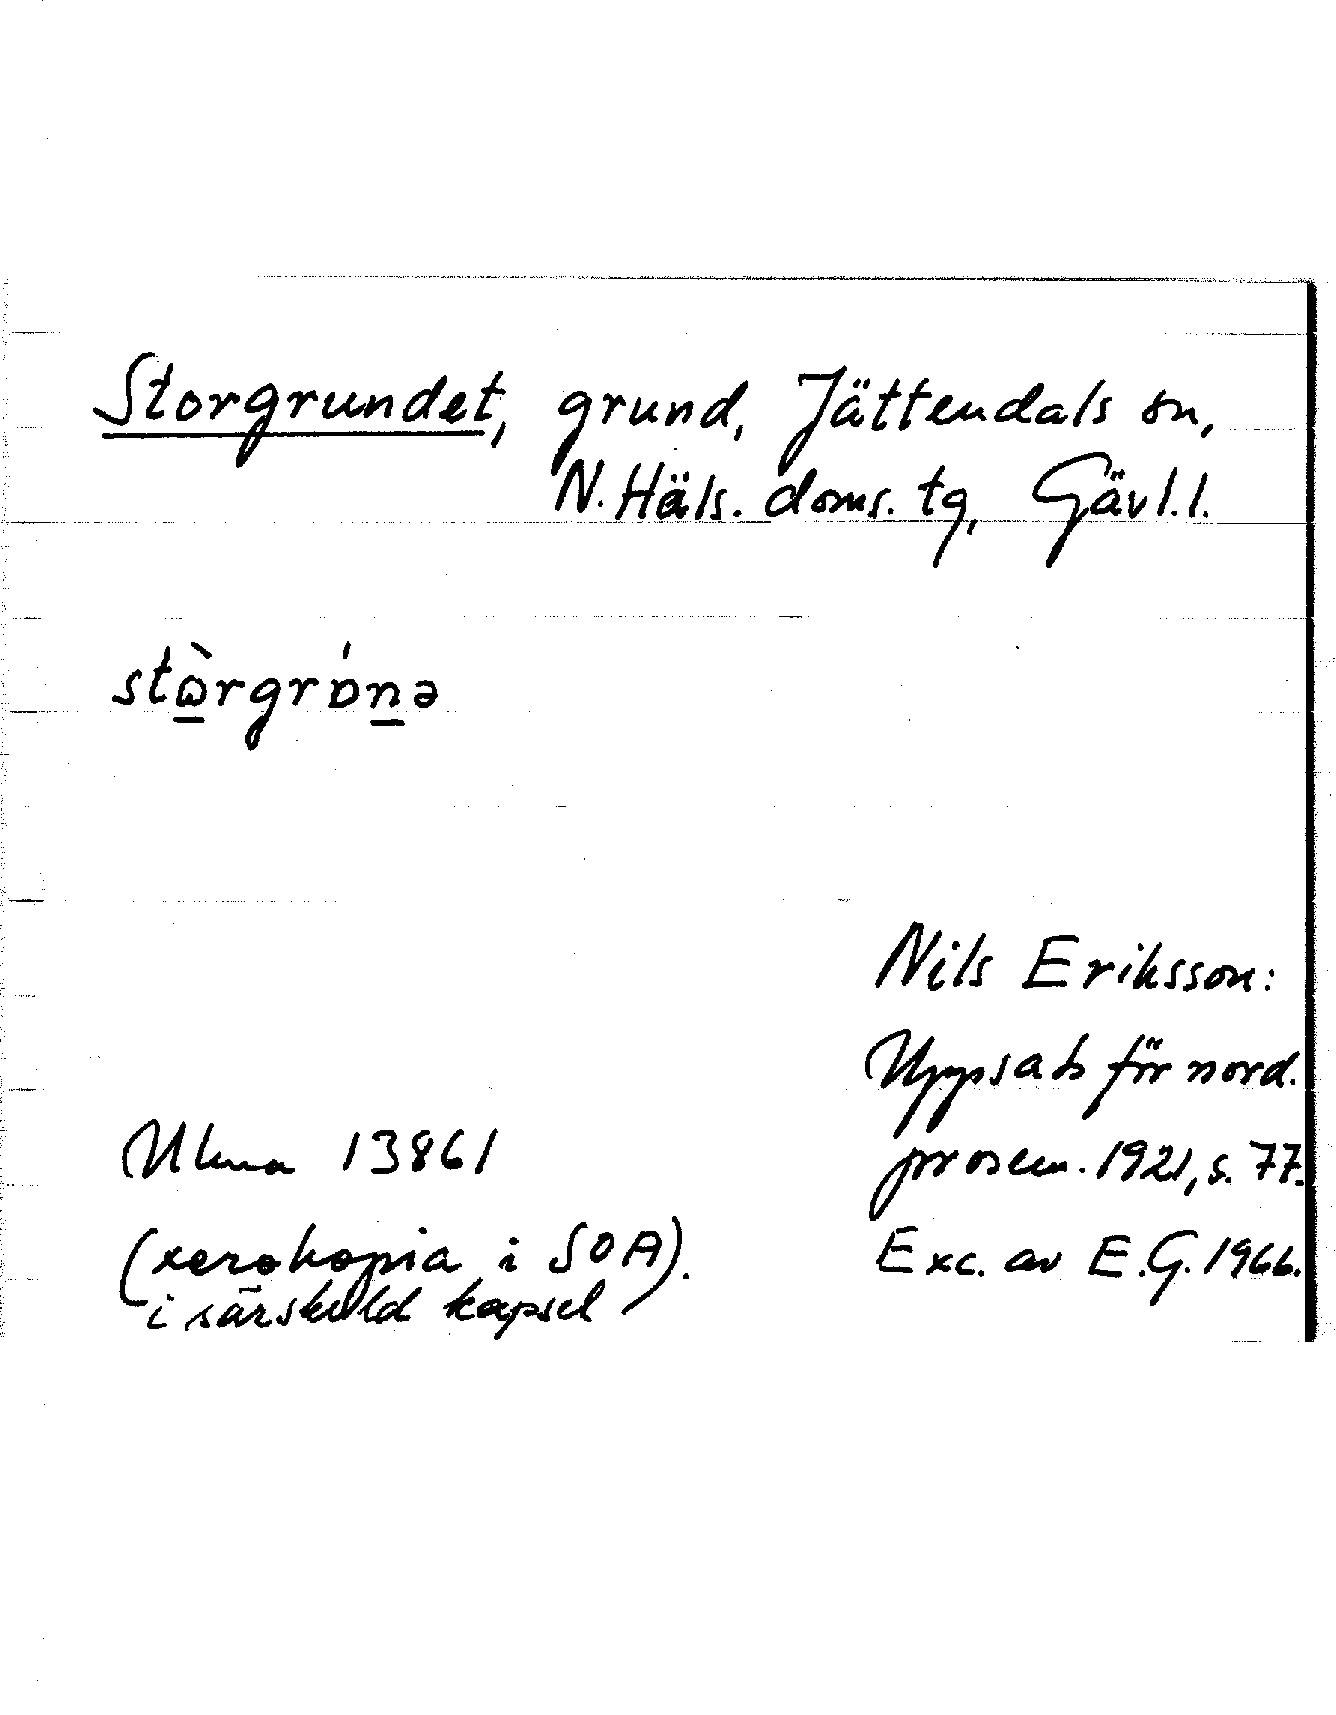 Storgrundet, grund, Jättendals sn,
N. Häls. doms. tg, Gävl. l.
stɷ̀rgrɒ́nə
Nils Eriksson:
Uppsats för nord.
prosem. 1921, s. 77.
Exc. av E.G. 1966.
Ulma 13861
(xerokopia i SOA).
i särskild kapsel